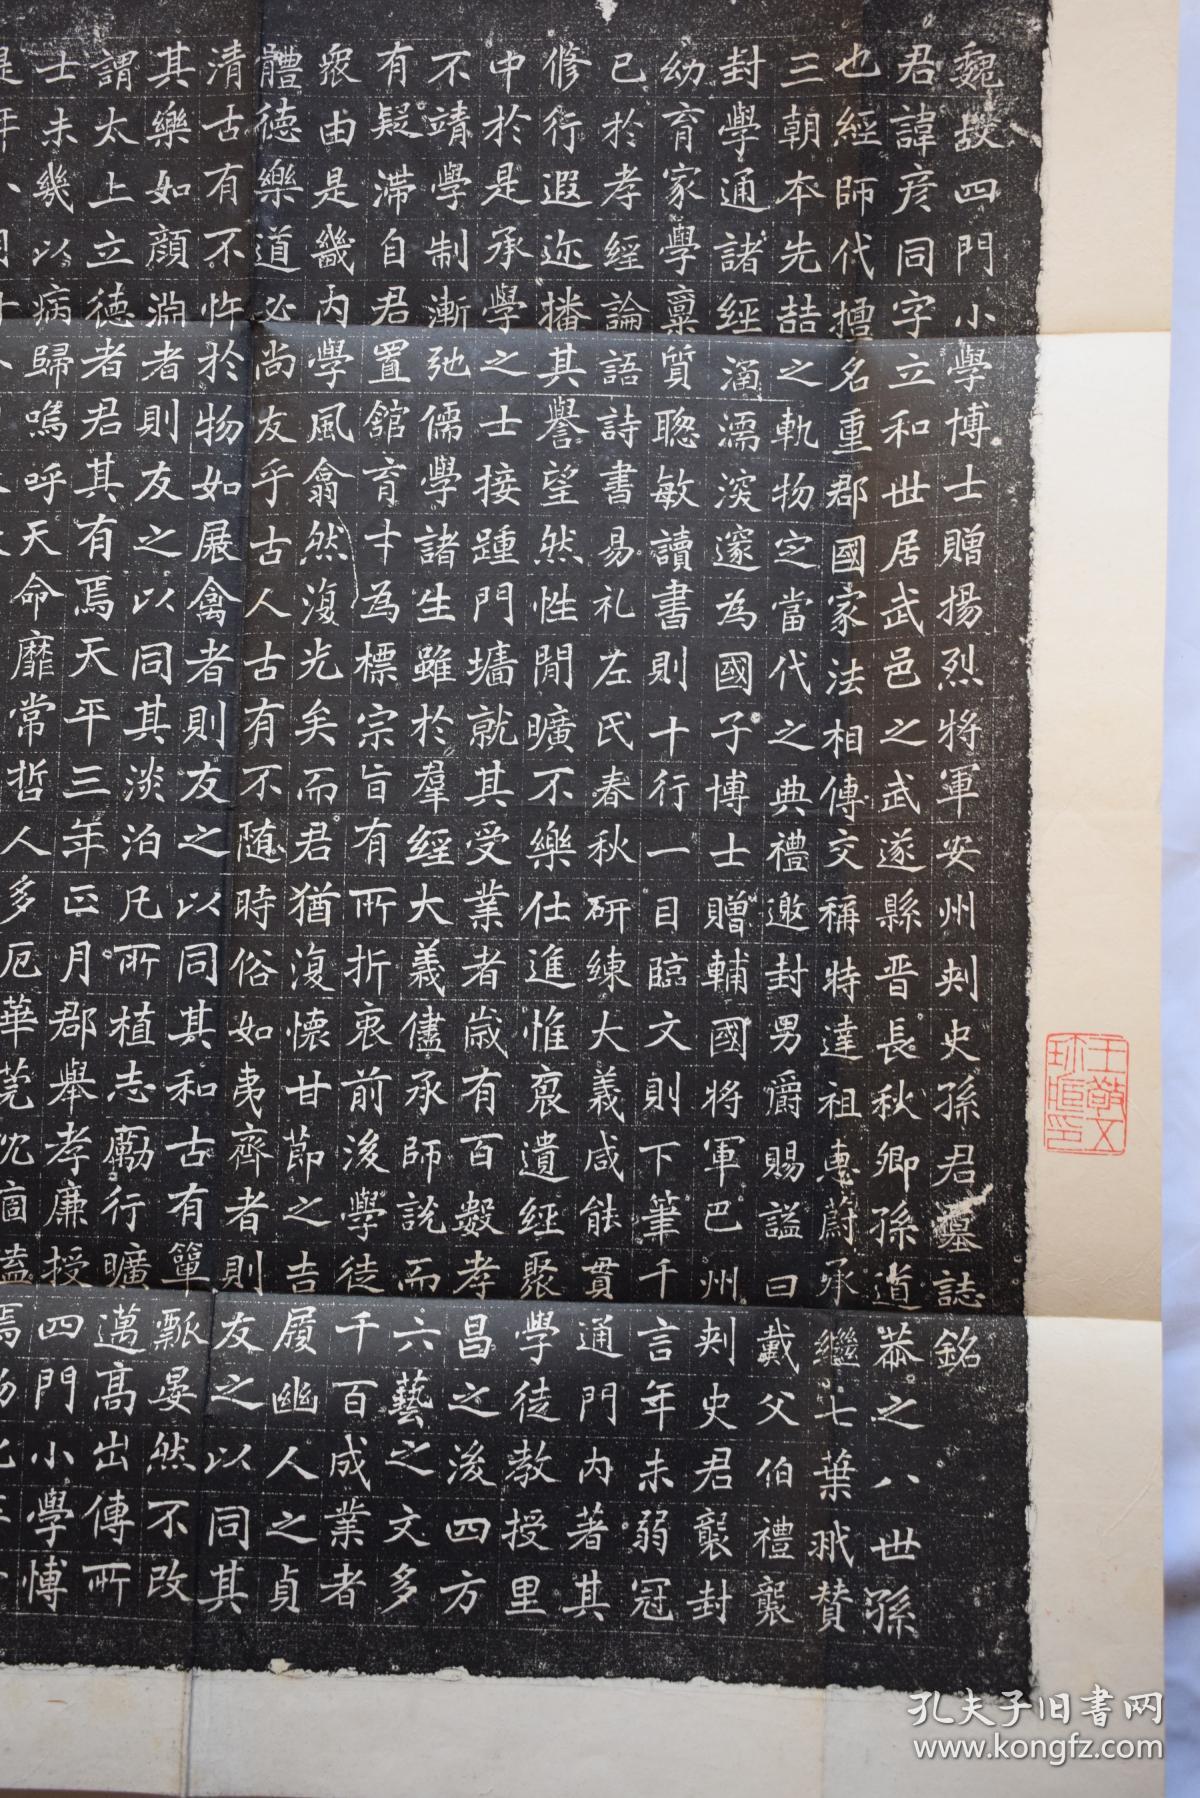 魏故四門小學博士贈揚烈將軍安州刾史孫君墓誌銘
君諱彦同字立和世居武邑之武遂縣晋長秋卿孫道恭之八世孫
也經師代擅名重郡國家法相傳交稱特達祖惠蔚承繼七葉戏賛
三朝本先喆之軌物定當代之典禮邀封男爵賜謚曰戴父伯禮襲
封學通諸經涵濡深邃為國子博士贈輔國將軍巴州刾史君襲封
㓜育家學稟質聦敏讀書則十行一目臨文則下筆千言年未弱冠
已於孝經論語詩書易礼左氏春秋研練大義咸能貫通門内著其
修行遐迩播其譽望然性閒曠不樂仕進惟裒遺經聚學徒教授里
中於是承學之士接踵門墻就其受業者歲有百數孝昌之後四方
不靖學制漸弛儒學諸生雖於羣經大義儘承師說而六藝之文多
有疑滯自君置舘育才為標宗旨有所折衷前後學徒千百成業者
衆由是畿内學風翕然復光矣而君猶復懷甘節之吉履幽人之貞
體徳樂道必尚友乎古人古有不随時俗如夷齊者則友之以同其
清古有不忤於物如展禽者則友之以同其和古有簞瓢晏然不改
其樂如顔淵者則友之以同其淡泊凡所植志勵行曠邁高出傳所
謂太上立徳者君其有焉天平三年正月郡舉孝廉授四門小學博
士未幾以病歸嗚呼天命靡常哲人多厄華莞
王敬五珎賾印
孔夫子旧书网
www.kongfz.com